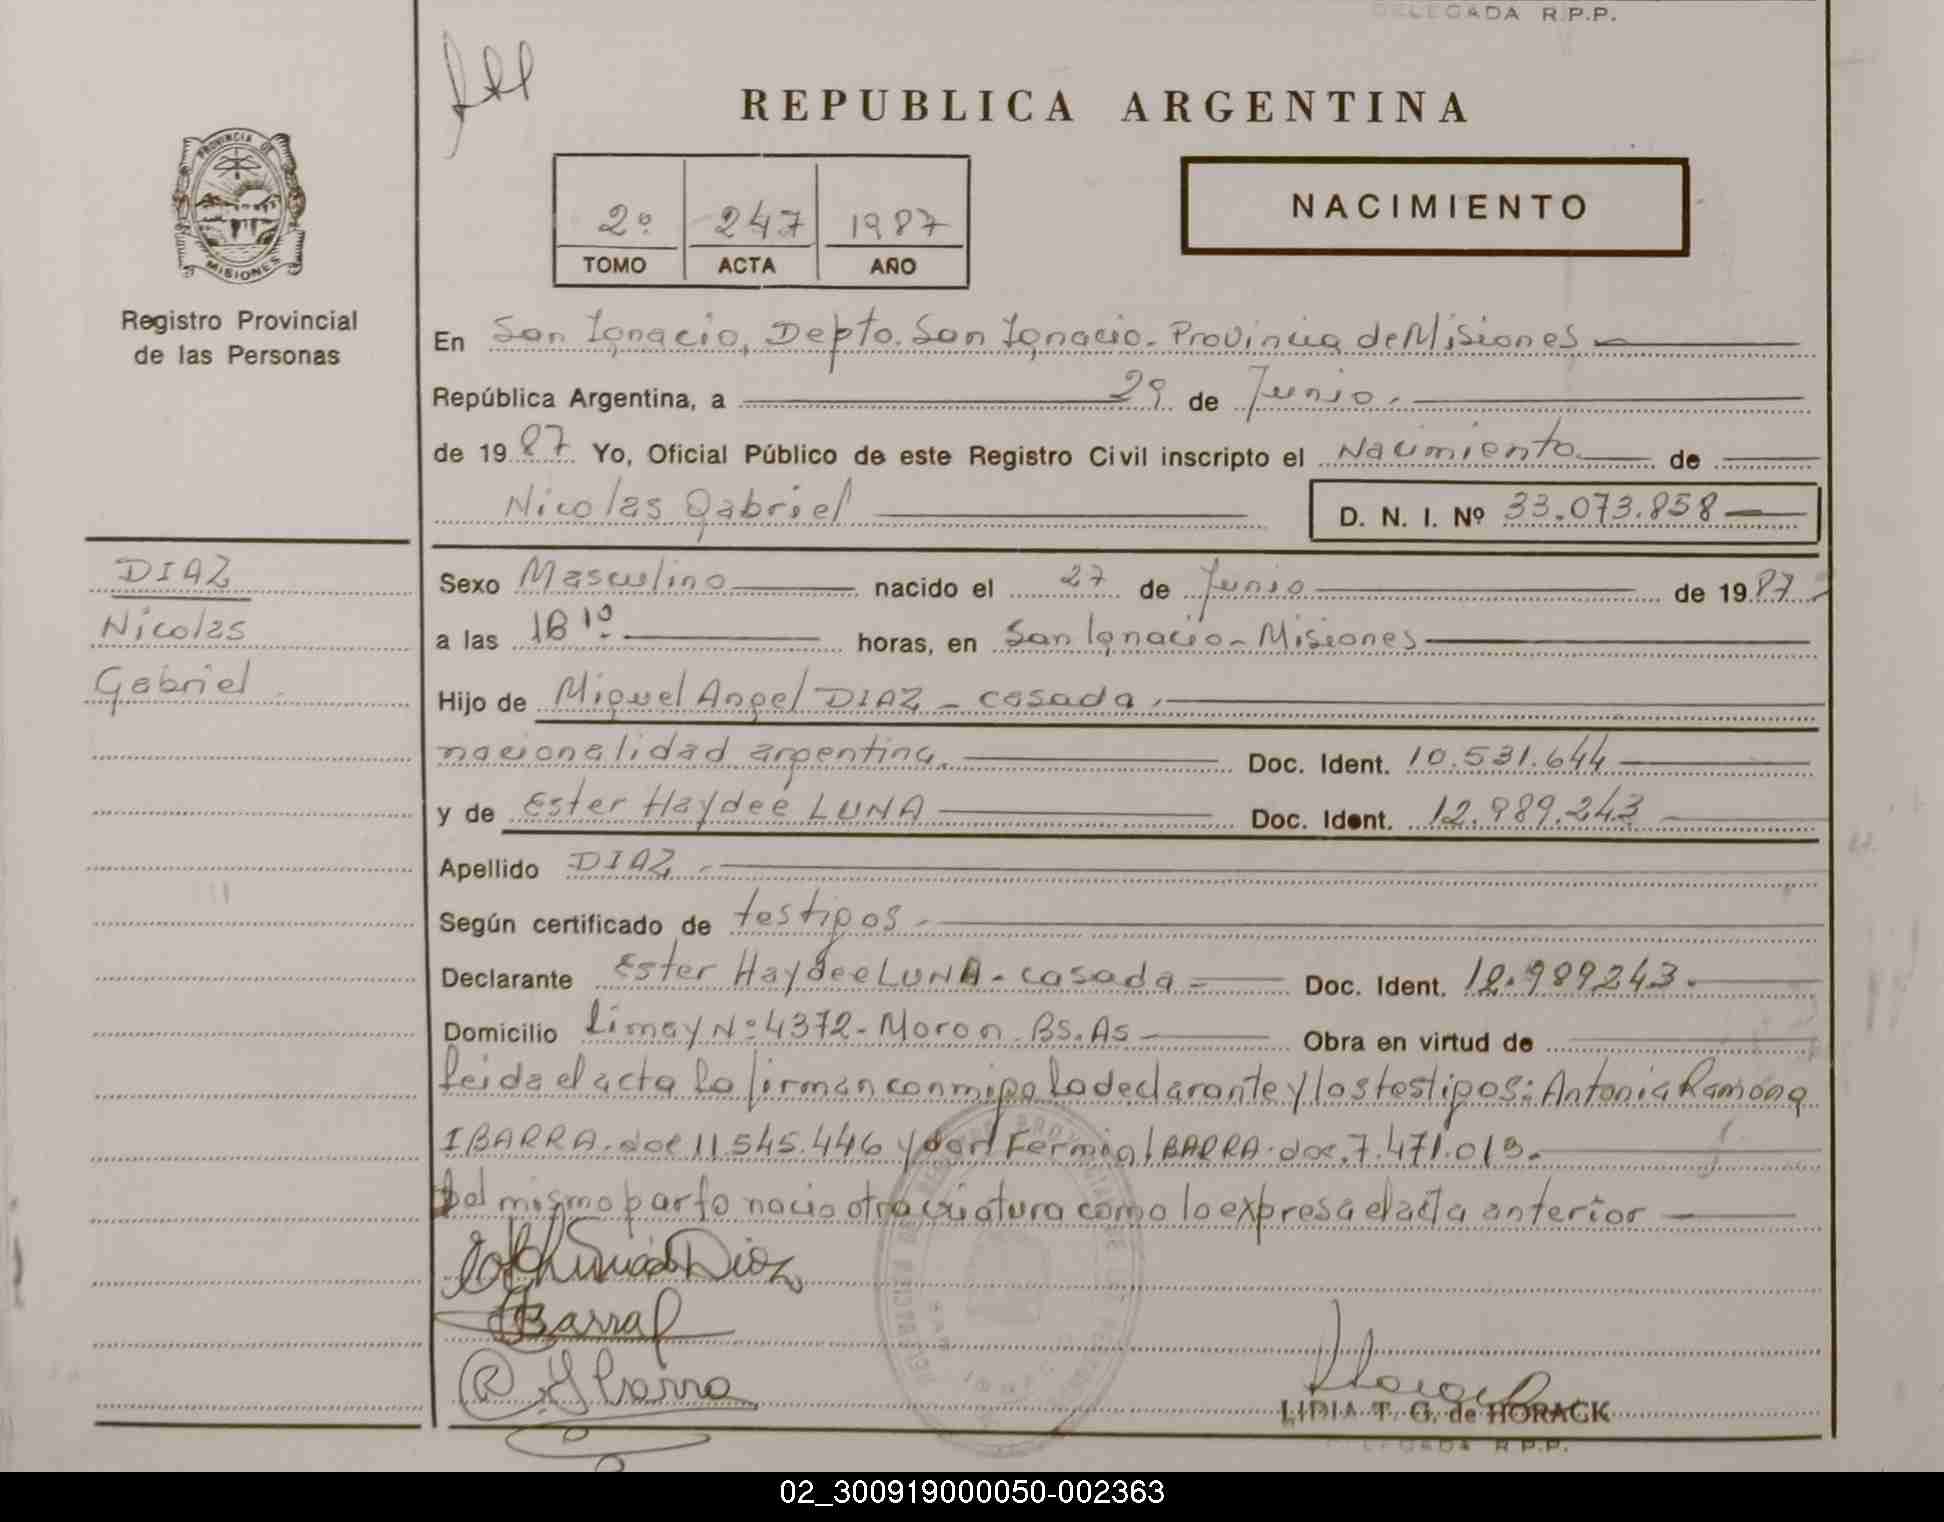 DELEGADA R.P.P.
REPUBLICA ARGENTINA
PROVINCIA DE
MISIONES
Registro Provincial
de las Personas
2º 247 1987
TOMO ACTA AÑO
NACIMIENTO
En San Ignacio, Depto. San Ignacio - Provincia de Misiones
República Argentina, a 29 de Junio.
de 1987 Yo, Oficial Público de este Registro Civil inscripto el Nacimiento de
Nicolas Gabriel D. N. I. Nº 33.073.858
DIAZ
Nicolas
Gabriel
Sexo Masculino nacido el 27 de Junio de 1987
a las 18 10 horas, en San Ignacio - Misiones
Hijo de Miguel Angel DIAZ - casada,
nacionalidad argentina. Doc. Ident. 10.531.644
y de Ester Haydeé LUNA Doc. Ident. 12.989.243
Apellido DIAZ.
Según certificado de testigos.
Declarante Ester Haydee LUNA - casada Doc. Ident. 12.989243.
Domicilio Limay Nº 4372 - Moron. BS.AS Obra en virtud de
leida el acta la firman conmigo la declarante y los testigos: Antonia Ramona
IBARRA. doc 11.545.446 y don Fermin IBARRA. doc. 7.471.013.
Del mismo parto nacio otra criatura como lo expresa el acta anterior
LIDIA T. G. de HORACK
DELEGADA R.P.P.
02_300919000050-002363